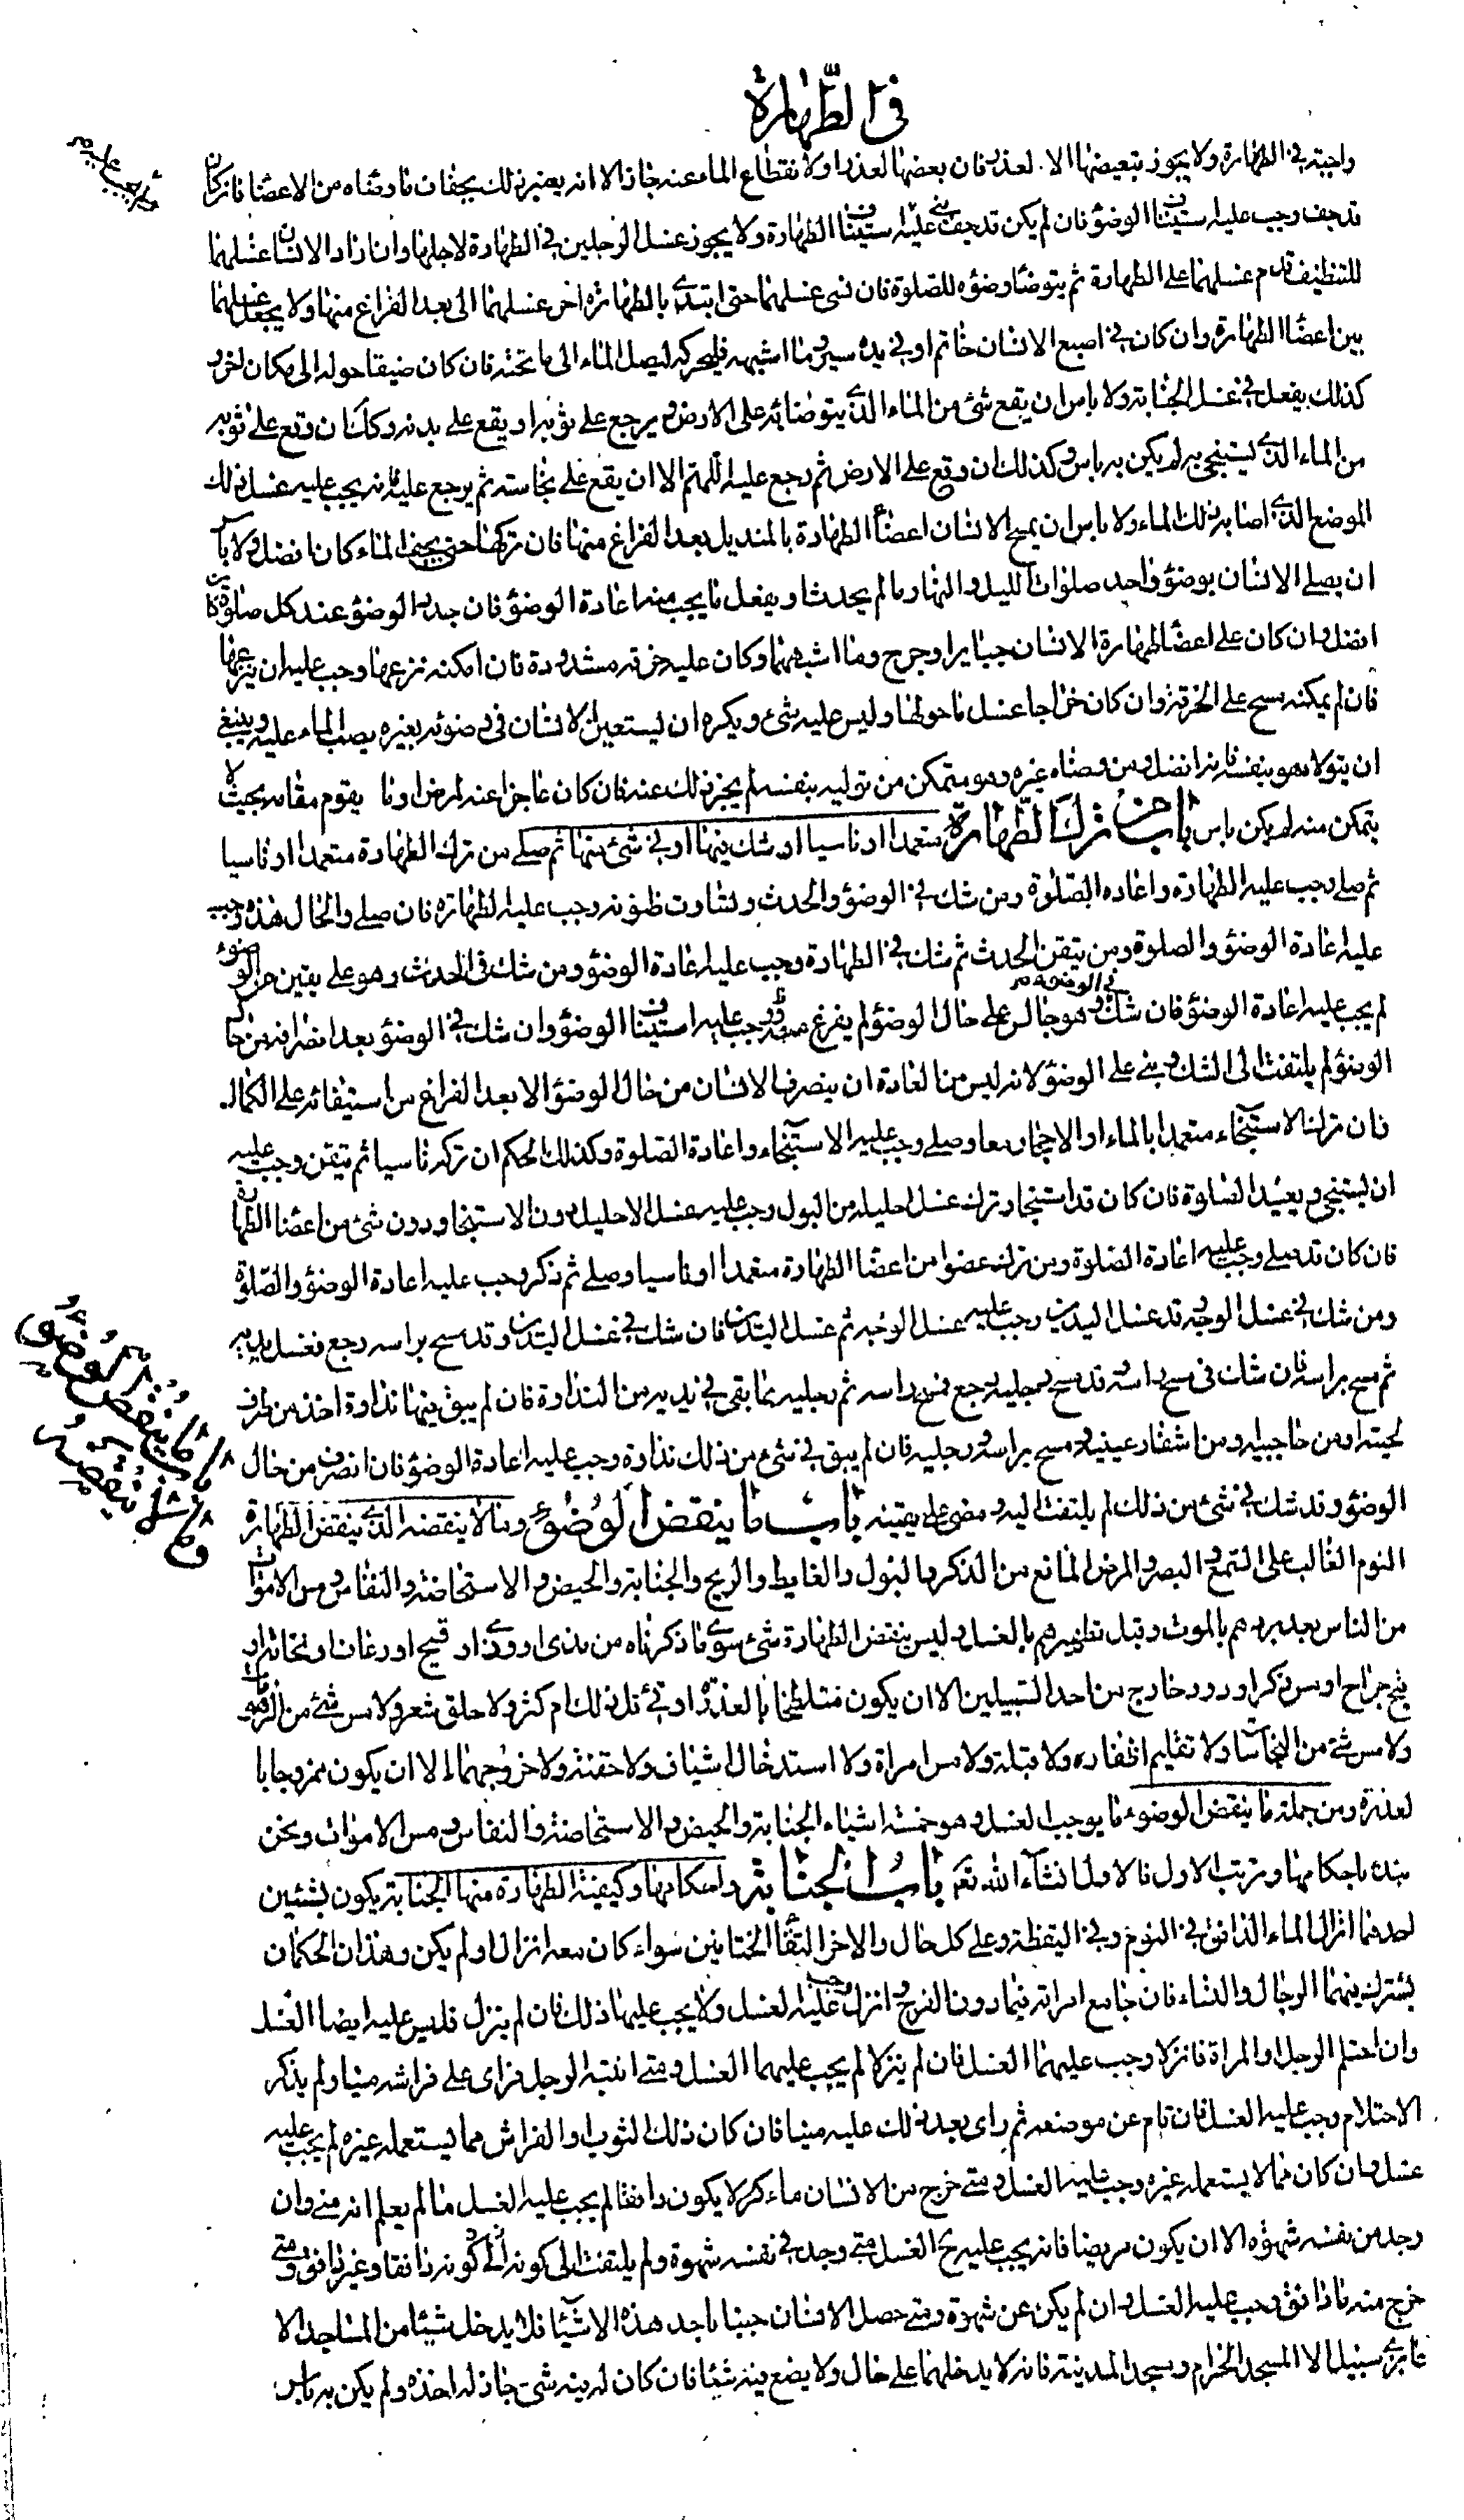 في الطهارة
واجبة في الطهارة ولا يجوز تبعيضها الا لعذر فان بعضها لعذر او لانقطاع الماء عنه جاز الا انه يعتبر ذلك بجفاف ما وضأه من الاعضا فان كان
قد جف وجب عليه استيناف الوضوء فان لم يكن قد جف بنى عليه استيناف الطهارة ولا يجوز غسل الرجلين في الطهارة لاجلها وان اراد الانسان غسلهما
للتنظيف قدم غسلهما على الطهارة ثم يتوضأ وضوءه للصلوة فان نسى غسلهما حتى ابتدى بالطهارة اخر غسلهما الى بعد الفراغ منها ولا يجعل غسلهما
بين اعضا الطهارة وان كان في اصبع الانسان خاتم او في يده سير وما اشبهه فليحركه ليصل الماء الى ما تحته فان كان ضيقا حوله الى مكان اخر و
كذلك يفعل في غسل الجنابة ولا باس ان يقع شئ من الماء الذي يتوضا به على الارض و يرجع على ثوبه او يقع على بدنه وكذلك ان وقع على ثوبه
من الماء الذي يستنجي به لم يكن به باس وكذلك ان وقع على الارض ثم رجع عليه اللهم الا ان يقع على نجاسة ثم يرجع عليه فانه يجب عليه غسل ذلك
الموضع الذي اصابه ذلك الماء ولا باس ان يمسح الانسان اعضاء الطهارة بالمنديل بعد الفراغ منها فان تركها حتى يجف الماء كان افضل ولا باس
ان يصلي الانسان بوضوء واحد صلوات الليل والنهار ما لم يحدث او يفعل ما يجب منه اعادة الوضوء فان جدد الوضوء عند كل صلوة كان
افضل وان كان على اعضا طهارة الانسان جباير او جرح وما اشبههما وكان عليه خرقة مشدودة فان امكنه نزعها وجب عليه ان ينزعها
فان لم يمكنه مسح على الخرقة وان كان خراجا غسل ما حولها وليس عليه شئ ويكره ان يستعين الانسان في وضوئه بغيره يصب الماء عليه وينبغي
ان يتولاه هو بنفسه فانه افضل ومن وضاه غيره وهو متمكن من توليه بنفسه لم يجز ذلك عنه فان كان عاجزا عنه لمرض او ما يقوم مقامه بحيث لا
يتمكن منه لم يكن به باس باب من ترك الطهارة متعمدا او ناسيا او شك فيها او في شئ منها ثم صلى من ترك الطهارة متعمدا او ناسيا
ثم صلى وجب عليه الطهارة واعادة الصلوة ومن شك في الوضوء والحدث وتساوت ظنونه وجب عليه الطهارة فان صلى والحال هذه وجب
عليه اعادة الوضوء والصلوة ومن تيقن الحدث ثم شك في الطهارة وجب عليه اعادة الوضوء ومن شك في الحدث وهو على يقين من الوضوء
لم يجب عليه اعادة الوضوء فان شك في الوضوء وهو جالس على حال الوضوء لم يفرغ منه وجب عليه استيناف الوضوء وان شك في الوضوء بعد انصرافه من حال
الوضوء لم يلتفت الى الشك وبنى على الوضوء لانه ليس من العادة ان ينصرف الانسان من حال الوضوء الا بعد الفراغ من استيفائه على الكمال
فان ترك الاستنجاء متعمدا بالماء او الاحجار معا وصلى وجب عليه الاستنجاء واعادة الصلوة وكذلك الحكم ان تركه ناسيا ثم تيقن وجب عليه
ان يستنجي ويعيد الصلوة فان كان قد استنجا وترك غسل احليله من البول وجب عليه غسل الاحليل دون الاستنجا ودون شئ من اعضا الطهارة
فان كان قد صلى وجب عليه اعادة الصلوة ومن ترك عضوا من اعضا الطهارة متعمدا او ناسيا وصلى ثم ذكر وجب عليه اعادة الوضوء والصلوة
ومن شك في غسل الوجه وقد غسل اليدين وجب عليه غسل الوجه ثم غسل اليدين فان شك في غسل اليدين وقد مسح براسه رجع فغسل يديه
ثم مسح براسه فان شك في مسح راسه وقد مسح رجليه رجع فمسح راسه ثم رجليه بما بقى في يديه من النداوة فان لم يبق فيها نداوة اخذ من اطراف
لحيته او من حاجبيه ومن اشفار عينيه ومسح براسه ورجليه فان لم يبق في شئ من ذلك نداوة وجب عليه اعادة الوضوء فان انصرف من حال
الوضوء وقد شك في شئ من ذلك لم يلتفت اليه ومضى على يقينه باب ما ينقض الوضوء وما لا ينقضه الذي ينقض الطهارة
النوم الغالب على السمع والبصر والمرض المانع من الذكر والبول والغايط والريح والجنابة والحيض والاستحاضة والنفاس ومس الاموات
من الناس بعد بردهم بالموت وقبل تطهيرهم بالغسل وليس ينقض الطهارة شئ سوى ما ذكرناه من مذى او وذى او قيح او رعاف او نخامة او
فتح جراح او مس ذكر او دود خارج من احد السبيلين الا ان يكون متلطخا بالعذرة او قئ قل ذلك ام كثر ولا حلق شعر ولا مس شئ من الزهومات
ولا مس شئ من النجاسات ولا تقليم اظفاره ولا قبلة ولا مس امراة ولا استدخال اشياف ولا حقنة ولا خروجهما الا ان يكون ممزوجا با
لعذرة ومن جملة ما ينقض الوضوء ما يوجب الغسل وهو خمسة اشياء الجنابة والحيض والاستحاضة والنفاس ومس الاموات ونحن
نبدء باحكامها ونرتب الاول فالاول انشاء الله تعه باب الجنابة واحكامها وكيفية الطهارة منها الجنابة يكون بشيئين
احدهما انزال الماء الدافق في النوم وفي اليقظة وعلى كل حال والاخر التقاء الختانين سواء كان معه انزال او لم يكن وهذان الحكمان
يشترك فيهما الرجال والنساء فان جامع امراته فيما دون الفرج وانزل وجب عليه الغسل ولا يجب عليها ذلك فان لم ينزل فليس عليه ايضا الغسل
وان احتلم الرجل او المراة فانزلا وجب عليهما الغسل فان لم ينزلا لم يجب عليهما الغسل ومتى انتبه الرجل فراى على فراشه منيا ولم يذكر
الاحتلام وجب عليه الغسل فان قام عن موضعه ثم راى بعد ذلك عليه منيا فان كان ذلك الثوب او الفراش مما يستعمله غيره لم يجب عليه
غسل وان كان مما لا يستعمله غيره وجب عليه الغسل ومتى خرج من الانسان ماء كثير لا يكون دافقا لم يجب عليه الغسل ما لم يعلم انه مني وان
وجد من نفسه شهوة الا ان يكون مريضا فانه يجب عليه ح الغسل متى وجد في نفسه شهوة ولم يلتفت الى كونه دافقا وغير دافق ومتى
خرج منه ماء دافق وجب عليه الغسل وان لم يكن عن شهوة ومتى حصل الانسان جنبا باحد هذه الاشياء فلا يدخل شيئا من المساجد الا
عابرى سبيل الا المسجد الحرام ومسجد المدينة فانه لا يدخلهما على حال ولا يضع فيه شيئا فان كان له فيه شئ جاز له اخذه ولم يكن به باس